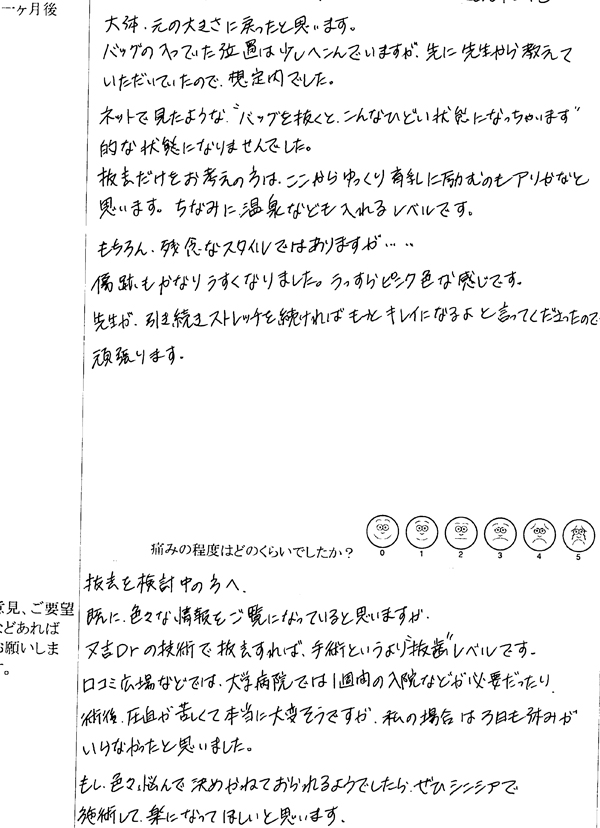 一ヶ月後
大体、元の大きさに戻ったと思います。
バッグの入っていた位置は少しへこんでいますが、先に先生から教えて
いただいていたので、想定内でした。
ネットで見たような、"バッグを抜くと、こんなひどい状態になっちゃいます"
的な状態になりませんでした。
抜去だけをお考えの方は、ここからゆっくり育乳に励むのもアリかなと
思います。ちなみに温泉なども入れるレベルです。
もちろん、残念なスタイルではありますが……
傷跡もかなりうすくなりました。うっすらピンク色な感じです。
先生が、引き続きストレッチを続ければもっとキレイになるよと言ってくださったので
頑張ります。
痛みの程度はどのくらいでしたか？
0 1 2 3 4 5
意見、ご要望
などあれば
お願いしま
す。
抜去を検討中の方へ、
既に、色々な情報をご覧になっていると思いますが、
又吉Drの技術で抜去すれば、手術というより"抜歯"レベルです。
口コミ広場などでは、大学病院では1週間の入院などが必要だったり、
術後、圧迫が苦しくて本当に大変そうですが、私の場合は3日も休みが
いらなかったと思いました。
もし、色々悩んで決めかねておられるようでしたら、ぜひシンシアで
施術して、楽になってほしいと思います。